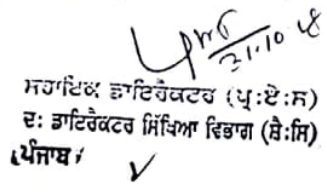 31-10-18
ਸਹਾਇਕ ਡਾਇਰੈਕਟਰ (ਪ੍ਰ:ਏ:ਸ)
ਦ: ਡਾਇਰੈਕਟਰ ਸਿੱਖਿਆ ਵਿਭਾਗ (ਸੈ:ਸਿ)
(ਪੰਜਾਬ)